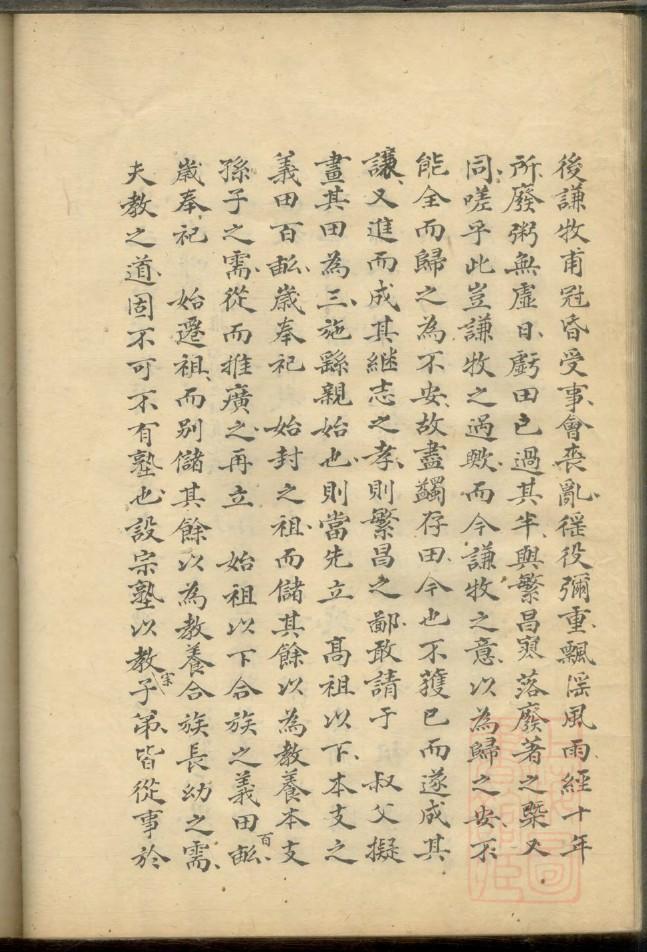 後謙牧甫冠昏受事會喪亂徭役彌重飄淫風雨經十年
所廢粥無虛日虧田已過其半與繁昌寥落廢著之槩又
同嗟乎此豈謙牧之過歟而今謙牧之意以為歸之安不
能全而歸之為不安故盡蠲存田今也不獲已而遂成其
讓又進而成其継志之孝則繁昌之鄙敢請于 叔父擬
畫其田為三施繇親始也則當先立 髙祖以下本支之
義田百畝歲奉祀 始封之祖而儲其餘以為教養本支
孫子之需從而推廣之再立 始祖以下合族之義田百畝
歲奉祀 始遷祖而別儲其餘以為教養合族長幼之需
夫教之道固不可不有塾也設宗塾以教宗子弟皆從事於